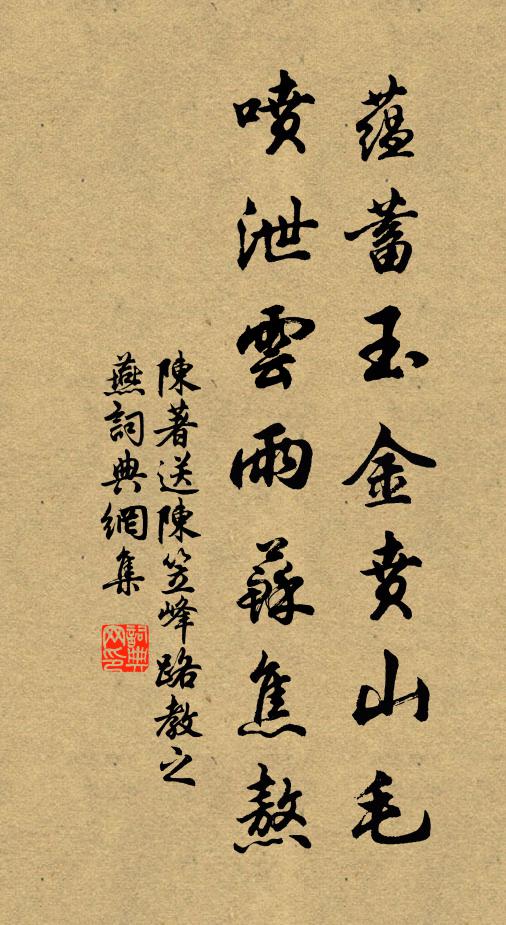 蘊蓄玉金賁山毛
噴泄雲雨蘇焦熬
陳著送陳笠峰路教之
燕詞典網集
詞典网印